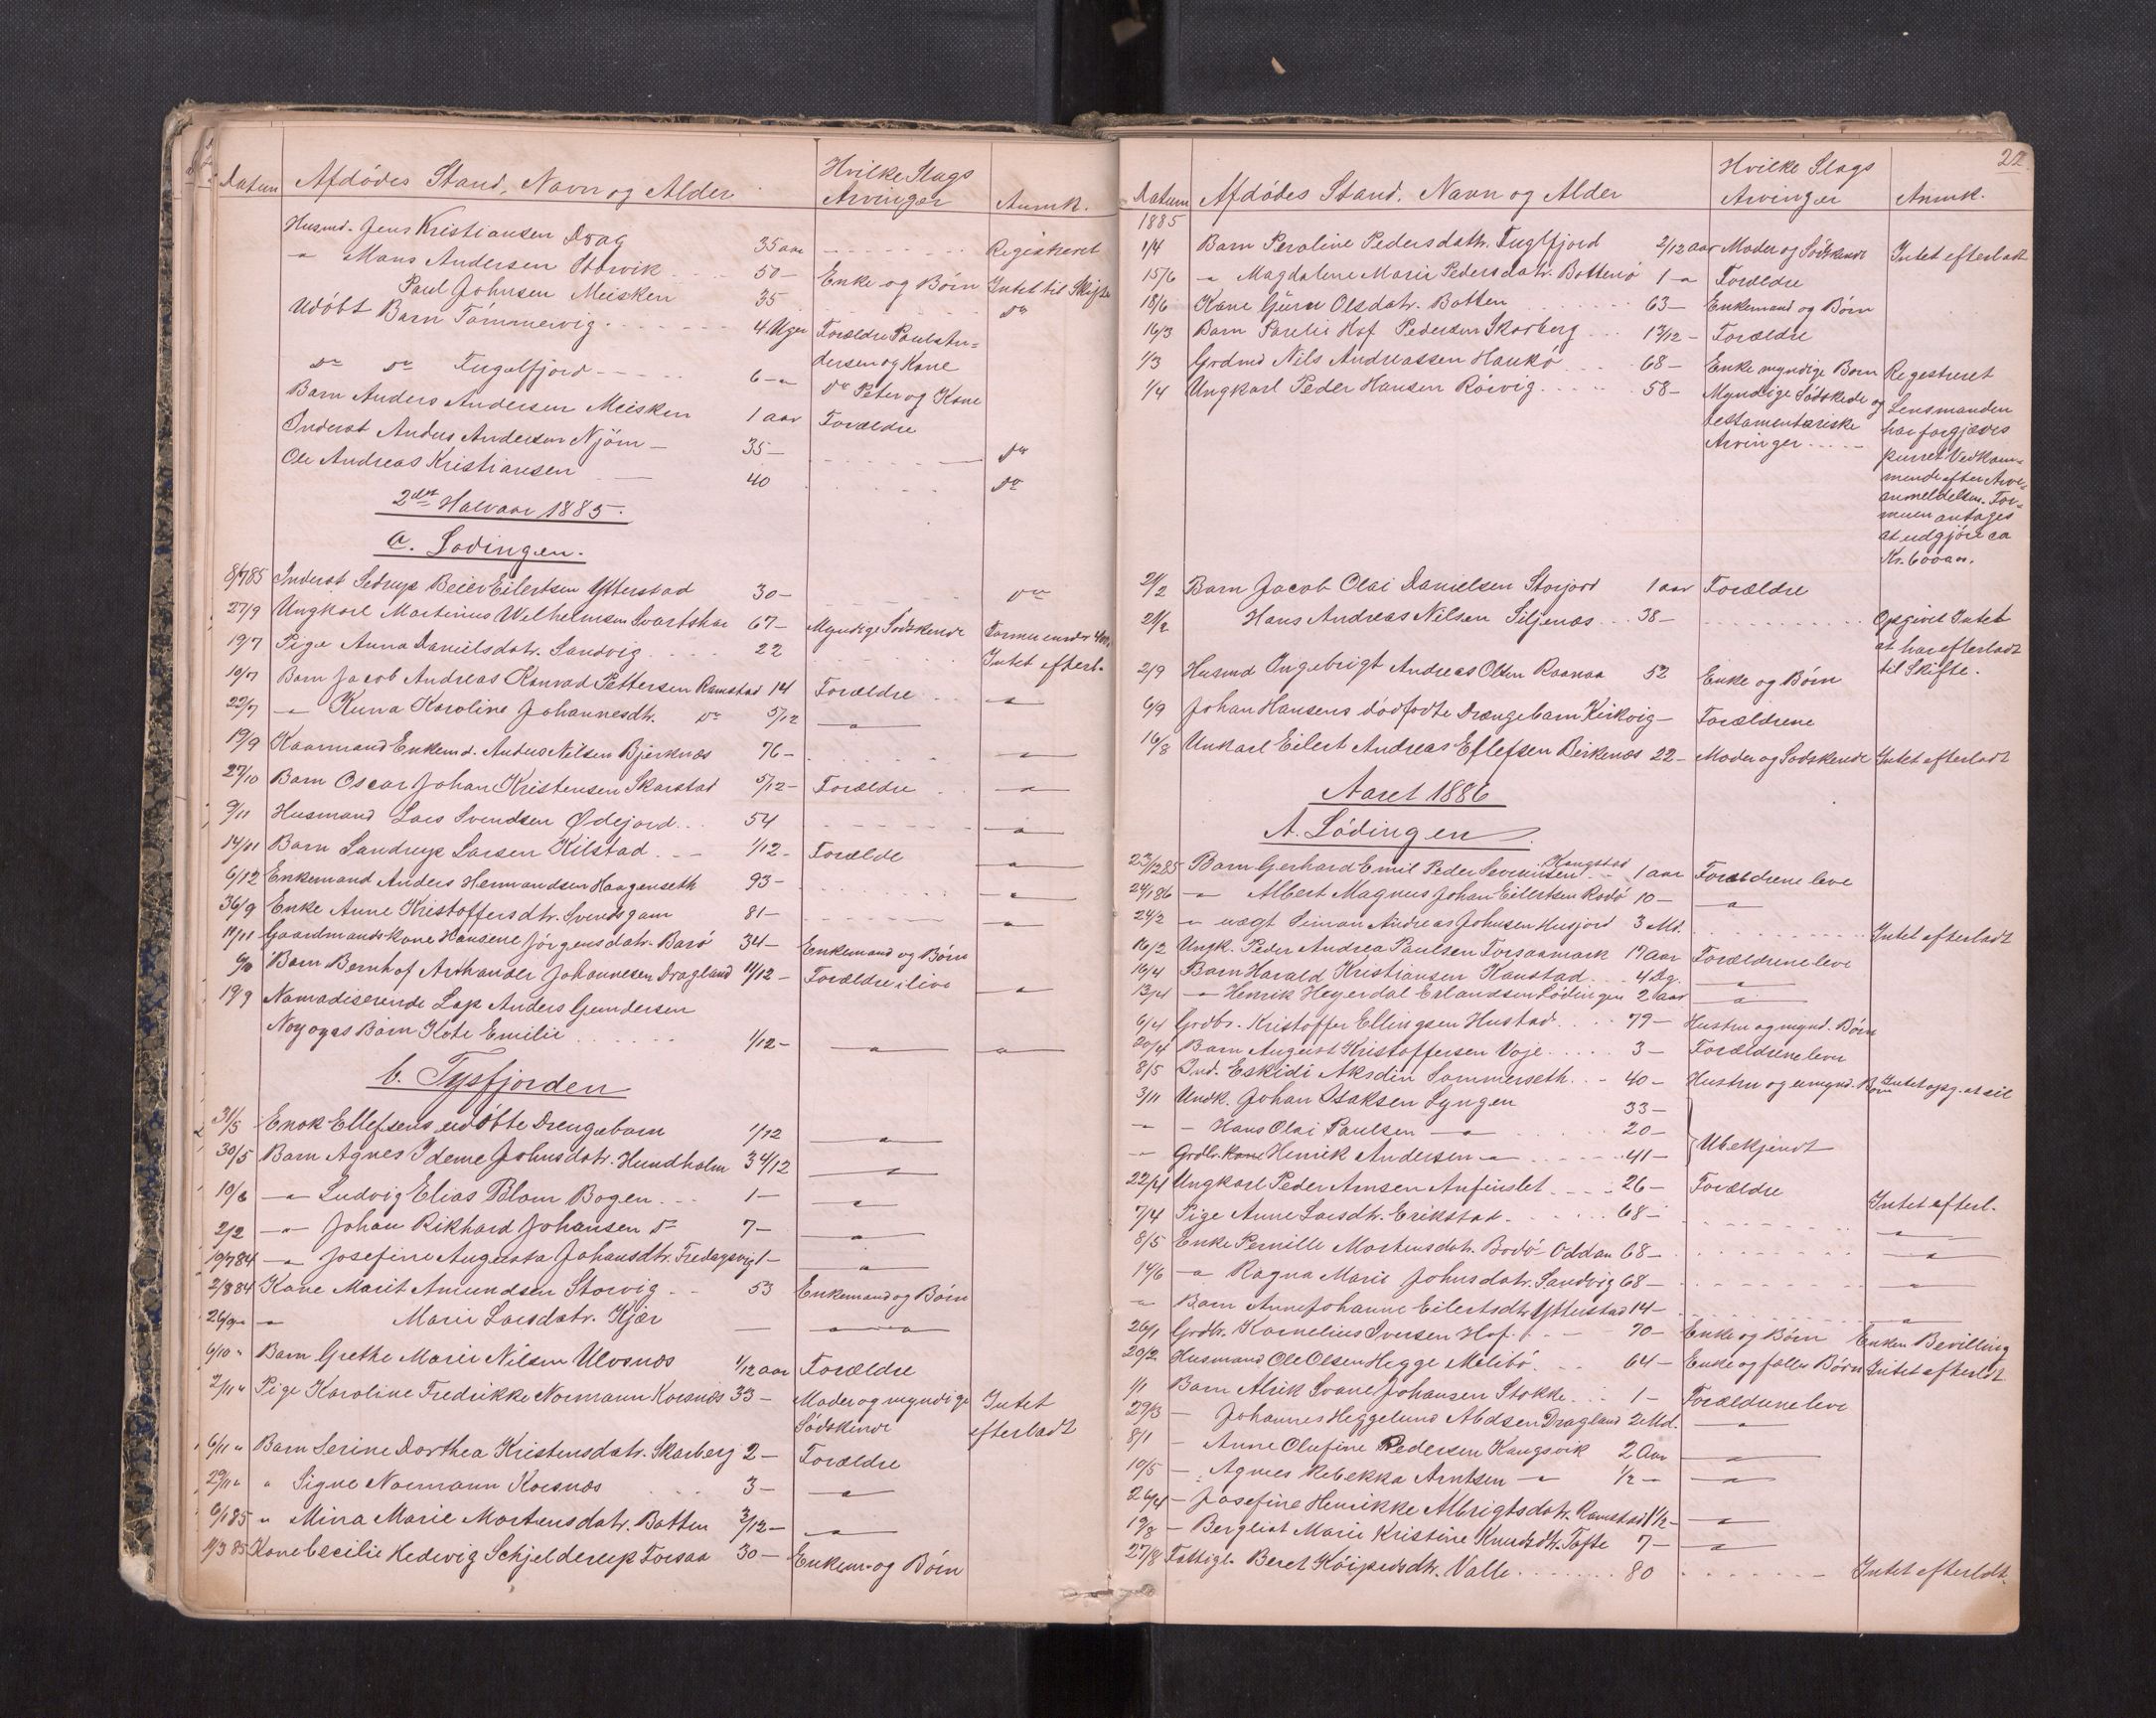 Datum Afdødes Stand, Navn og Alder Hvilke Slags Arvinger Anmk.
Husmd. Jens Kristiansen Drag 35 aar - - - Registreret
" Mons Andersen Storvik 50 - Enke og Børn Intet til Skifte
Paul Johnsen Meisken 35 do
Udøbt Barn Tommervig 4 Uger Forældre Paul An=
dersen og Kone
do do Fugelfjord 6 - " do Peter og Kone
Barn Anders Andersen Meisken 1 aar Forældre
Inderst Anders Andersen Njörn - 35 - do
Ole Andreas Kristiansen - 40 do
2det Halvaar 1885.
a. Lodingen.
8/7 85 Inderst Beier Eilertsen Ytterstad 30 - do
27/9 Ungkarl Martinus Wilhelmsen Svartskar 67 - Myndige Sødskende
19/7 Pige Anna Danielsdatr. Sandvig 22 Intet efterl.
10/7 Barn Jacob Andreas Konrad Pettersen Ramstad 14 Forældre "
22/7 " Runa Karoline Johannesdtr. do 5/12 "
19/9 Kaarmand Enkemd. Anders Nilsen Bjerknæs 76 - "
27/10 Barn Oscar Johan Kristensen Skarstad 5/12 - Forældre "
9/11 Husmand Lars Svendsen Ødejord 54 "
14/11 Barn Sandrup Larsen Kilstad 1/12 - Forælde "
6/12 Enkemand Anders Hermandsen Haagenseth 93 - "
Enke Anne Kristoffersdtr. Svendsgam 81 - "
11/11 Gaardmandskone Hansene Jørgensdatr. Barö 34 - Eenkemand og Børn
Barn Bernhof Arthander Johannesen Dragland 11/12 - Forældre i live
19/9 Nomadiserende Lap Anders Gundersen "
Børn Kate Emilie 1/12 - " "
b. Tysfjorden
31/5 Enok Ellefsens udøbte Drengebarn 1/12 "
30/5 Barn Agnes Ideme Johnsdatr. Hundholm 3 4/12 "
10/6 " Ludvig Elias Blom Bogen 1 - "
2/2 " Johan Rikhard Johansen do 7 - "
19/7 84 " Josefine Augusta Johansdtr. Fredagsvig 1 - "
2/8 84 Kone Marit Amundsen Storvig 53 Enkemand og Børn
26/9 " " Marie Larsdatr. Kjær - "
6/10 " Barn Grethe Marie Nilsen Ulvsnæs 1/12 aar Forældre
2/11 " Pige Karoline Fredrikke Normann Korsnæs 33 - Moder og myndige Intet
Sødskende efterladt
6/11 " Barn Serine Dorthea Kristensdatr. Skarberg 2 - Forældre
29/11 " " Signe Normann Korsnæs 3 - "
6/1 85 " Mina Marie Mortensdatr. Botten 2/12 - "
11/3 85 Kone Cecilie Hedevig Schjelderup Forsaa 30 - Enkem. og Børn
22
Datum Afdødes Stand, Navn og Alder Hvilke Slags Arvinger Anmk.
1885
1/4 Barn Peroline Pedersdatr. Fuglfjord 2/12 aar Moder og Sødskende Intet efterladt
15/6 " Magdalene Marie Pedersdatr. Botten 1 - " Forældre
18/6 Kone Gjern Olsdatr. Botten 63 - Enkemand og Børn
16/3 Barn Parelie Hof Pedersen Skarberg 1 3/12 - Forældre
1/3 Grdmd Nils Andreassen Haukö 68 - Enke myndige Børn Registreret
1/4 Ungkarl Peder Hansen Rörvig 58 - Myndige Sødskede og Lensmanden
testamentariske har forgjæves
Arvinger purret Vedkom=
mende efter Arve=
anmeldelsen. For=
muen antages
at udgjöre ca
Kr. 6000.
21/2 Barn Jacob Olai Danielsen Storjord 1 aar Forældre
21/2 Hans Andreas Nilsen Siljenæs 38 - Opgivet Intet
at have efterladt
2/9 Husmd Ingebrigt Andreas Olsen Raanaa 52 Enke og Børn til Skifte.
6/9 Johan Hansens dødfødte Drængebarn Kirkvig - Forældrene
16/8 Unkarl Eilert Andreas Eflefsen Birkenæs 22 - Moder og Sødskende Intet efterladt
Aaret 1886
A. Lödingen.
23/12 85 Barn Gerhard Emil Peder Severinsen Kangstad 1 aar Forældrene leve
24/1 86 " Albert Magnus Johan Eilertsen Rodö 10 - "
24/2 " uægt Simon Andreas Johnsen Husjord 3 Md. Intet efterladt
16/2 Ungk. Peder Andrea Paulsen Forsaamark 17 aar Forældrene leve
16/4 Barn Harald Kristiansen Kanstad 4 Dg. "
13/4 " Henrik Heyerdal Erlandsen Lödingen 2 aar "
6/4 Grdbr. Kristoffer Ellingsen Hustad 79 - Hustru og mynd. Børn
20/4 Barn August Kristoffersen Voje 3 - Forældrene lever
8/5 Ind. Eskidi Aksdin Sommerseth 40 - Hustru og umynd. Børn Intet opg. at eie
3/11 Undk. Johan Isaksen Lyngen 33 -
" - Hans Olai Paulsen " 20 - Ubekjendt
" Grdbr. Kone Henrik Andersen " 41 -
22/4 Ungkarl Peder Arnsen Anfinslet 26 - Forældre
7/4 Pige Anne Larsdtr. Erikstad 68 - Intet efterl.
8/5 Enke Pernille Mortensdatr. Bodö Oddan 68 - "
14/6 " Ragna Marie Johnsdatr. Sandvig 68 - "
" Barn Anne Johanne Eilertsdtr. Ytterstad 14 - "
26/1 Grdbr. Kornelius Iversen Hof 70 - Enke og Børn Enken Bevilling
20/2 Husmand Ole Olsen Hegge Melibö 64 - Enke og fælles Børn Intet efterladt
1/1 Barn Alrik Svane Johansen Stokke 1 - Forældrene leve
29/3 - Johannes Heggelund Abdsen Dragland 2 Md. "
8/1 - Anne Olufine Pedersen Kangsvik 2 Aar "
10/5 - Agnes Rebekka Arntsen " 1/2 - "
26/4 - Josefine Henrikke Albrigtsdatr. Ramstad 1 1/2 - "
19/8 - Bergliot Marie Kristine Knudsdtr. Tofte 7 - "
27/8 Fattigl. Beret Köipsdtr. Valle 80 Intet efterladt.